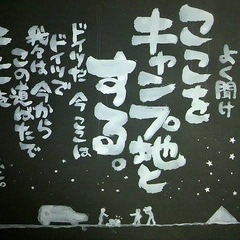 よく聞け
ここを
キャンプ地と
する。
ドイツだ 今ここは
ドイツで
我々は 今から
この道ばたで